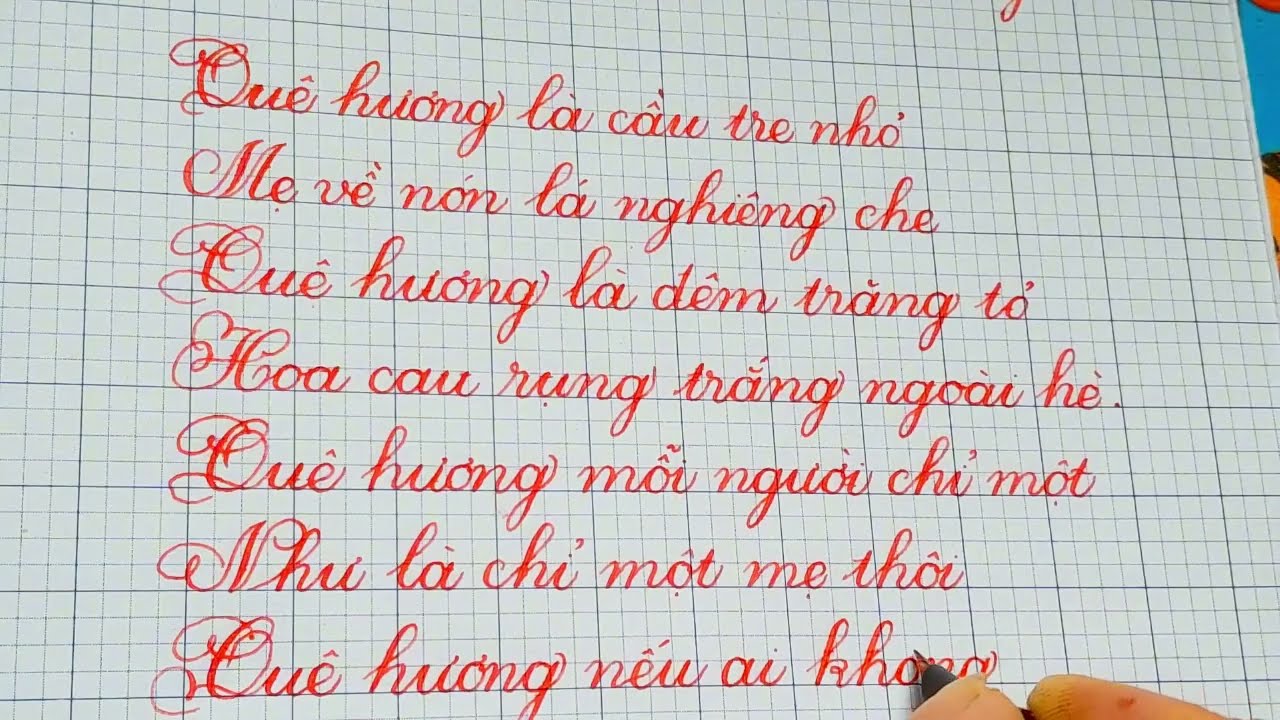 Quê hương là cầu tre nhỏ
Mẹ về nón lá nghiêng che
Quê hương là đêm trăng tỏ
Hoa cau rụng trắng ngoài hè.
Quê hương mỗi người chỉ một
Như là chỉ một mẹ thôi
Quê hương nếu ai khong